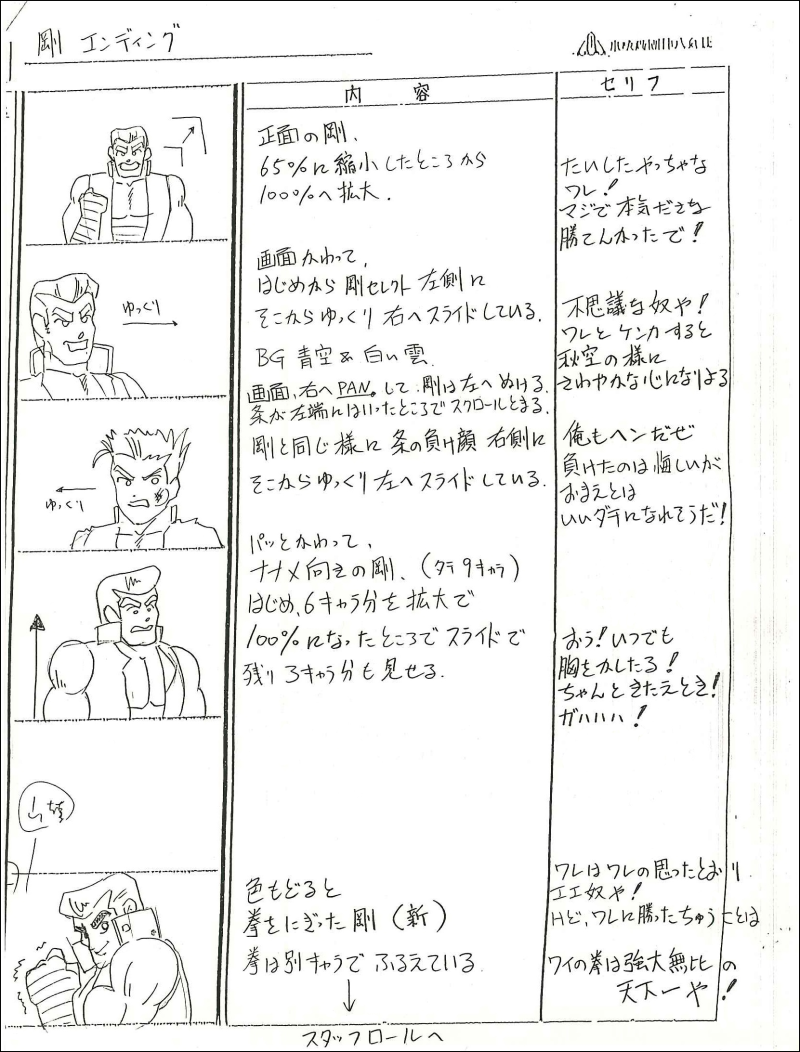 剛 エンディング
内容
セリフ
正面の剛、
65%に縮小したところから
100%へ拡大.
たいしたやっちゃな
ワレ!
マジで本気ださな
勝てんかったで!
ゆっくり
画面かわって、
はじめから剛セレクト 左側に
そこからゆっくり 右へスライドしている.
BG 青空&白い雲.
画面、右へPAN。して、剛は左へぬける.
条が左端にはいったところでスクロールとまる.
不思議な奴や!
ワレとケンカすると
秋空の様に
さわやかな心になりよる
ゆっくり
剛と同じ様に 条の負け顔 右側に
そこからゆっくり 左へスライドしている.
俺もヘンだぜ
負けたのは悔しいが
おまえとは
いいダチになれそうだ!
パッとかわって、
ナナメ向きの剛、(タテ9キャラ)
はじめ、6キャラ分を拡大で
100%になったところでスライドで
残り3キャラ分も見せる.
おう!いつでも
胸をかしたる!
ちゃんときたえとき!
ガハハハ!
色もどると
拳をにぎった剛 (新)
拳は別キャラで ふるえている.
ワレはワレの思ったとおり
エエ奴や!
Hど、ワレに勝ったちゅうことは
ワイの拳は強大無比の
天下一や!
スタッフロールへ